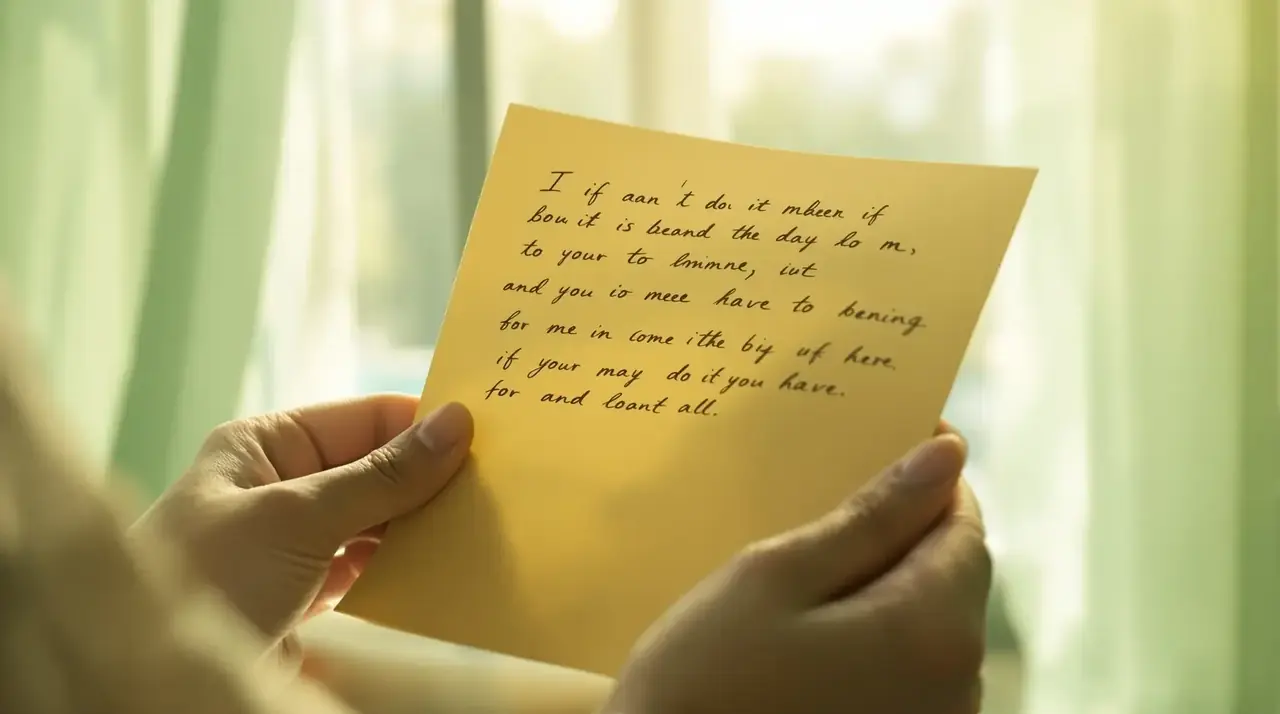 I if aan't do it mbeen if
bou it is beand the day lo m,
to your to lmimne, iut
and you io meee have to bening
for me in come ithe biy uf here.
if your may do it you have.
for and loant all.